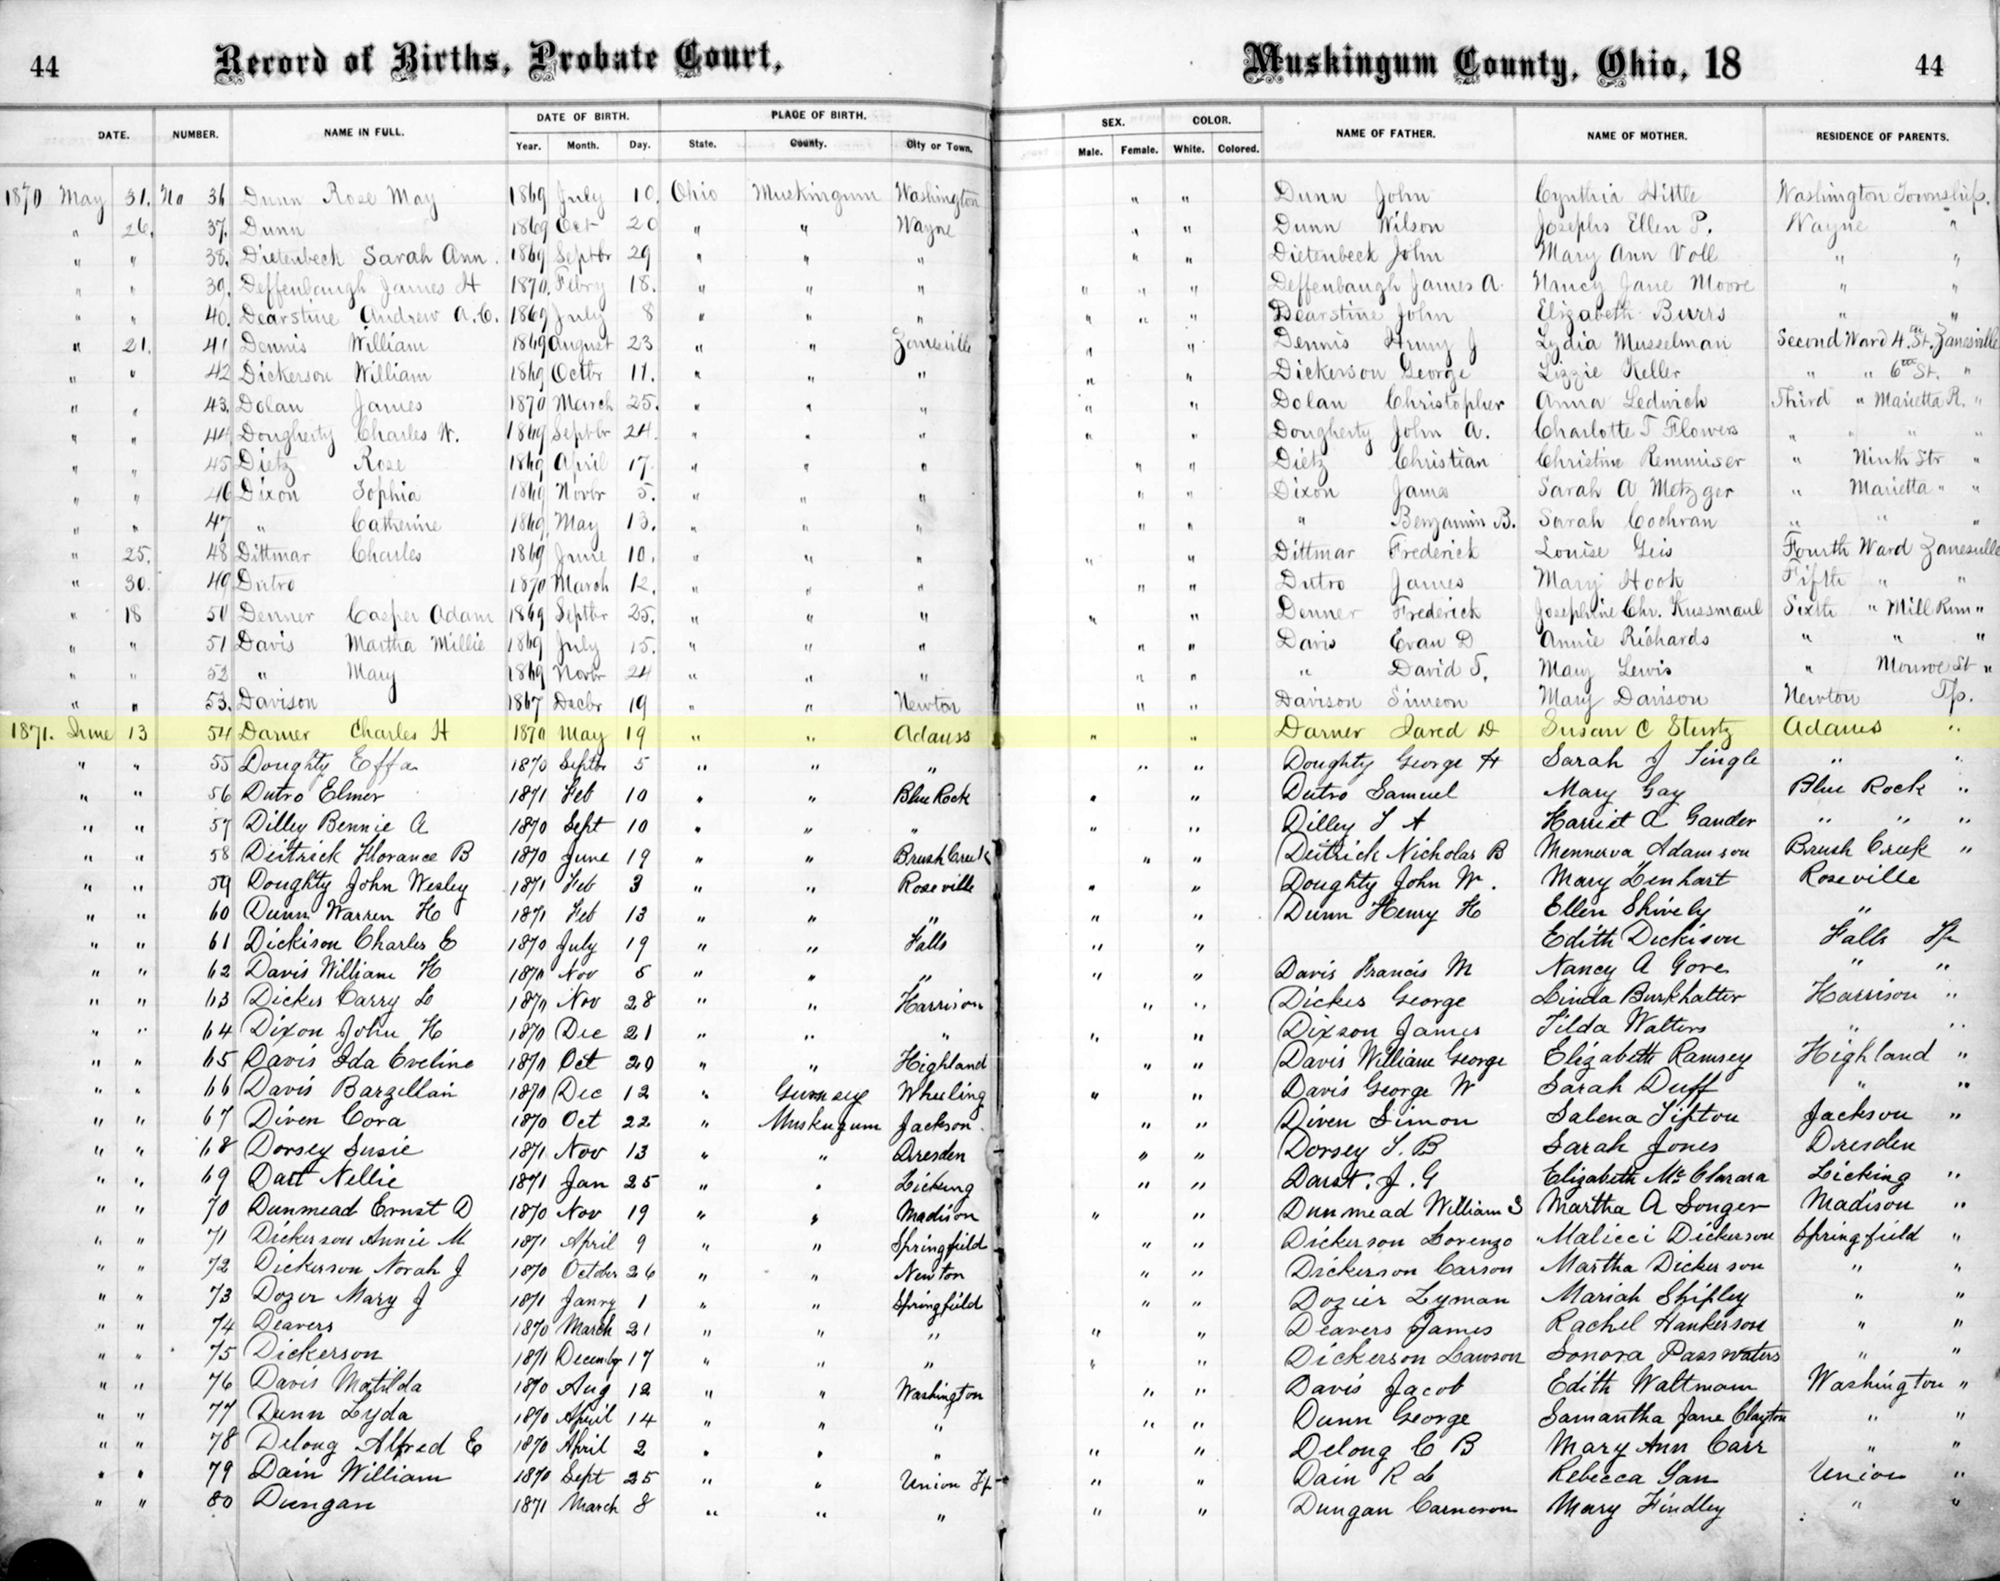 44 Record of Births, Probate Court, Muskingum County, Ohio, 18 44
DATE. NUMBER. NAME IN FULL. DATE OF BIRTH. PLACE OF BIRTH. SEX. COLOR. NAME OF FATHER. NAME OF MOTHER. RESIDENCE OF PARENTS.
Year. Month. Day. State. County. City or Town. Male. Female. White. Colored.
1870 May 31. No 36 Dunn Rose May 1869 July 10. Ohio Muskingum Washington " " Dunn John Cynthia Hittle Washington Township.
" 26. 37. Dunn 1869 Oct 20 " " Wayne " " Dunn Wilson Josephs Ellen P. Wayne "
" " 38. Dietenbeck Sarah Ann. 1869 Septbr 29 " " " " " Dietenbeck John Mary Ann Voll " "
" " 39. Deffenbaugh James H 1870. Febry 18. " " " " " " Deffenbaugh James A. Nancy Jane Moore " "
" " 40. Dearstine Andrew A.C. 1869 July 8 " " " " " " Dearstine John Elizabeth Burrs " "
" 21. 41 Dennis William 1869 August 23 " " Zanesville " " Dennis Henry J Lydia Musselman Second Ward 4. St. Zanesville
" " 42 Dickerson William 1869 Octbr 11. " " " " " Dickerson George Lizzie Keller " " 6th St. "
" " 43. Dolan James 1870 March 25. " " " " " Dolan Christopher Anna Ledwich Third " Marietta R. "
" " 44 Dougherty Charles W. 1869 Septbr 24. " " " " " Dougherty John A. Charlotte T Flowers " " " "
" " 45 Dietz Rose 1869 April 17. " " " " " Dietz Christian Christine Remmiser " Ninth Str "
" " 46 Dixon Sophia 1869 Novbr 5. " " " " " Dixon James Sarah A Metzger " Marietta " "
" " 47 " Catherine 1869 May 13. " " " " " " Benjamin B. Sarah Cochran " " "
" 25. 48 Dittmar Charles 1869 June 10. " " " " " Dittmar Frederick Louise Geis Fourth Ward Zanesville
" 30. 49 Dutro 1870 March 12. " " " " " Dutro James Mary Hook Fifth " "
" 18 50 Denner Casper Adam 1869 Septbr 25. " " " " " Denner Frederick Josephine Chr. Kussmaul Sixth " Mill Run "
" " 51 Davis Martha Millie 1869 July 15. " " " " " Davis Evan D Annie Richards " " "
" " 52 " Mary 1869 Novbr 24 " " " " " " David T. Mary Lewis " Monroe St "
" " 53. Davison 1867 Decbr 19 " " Newton " " Davison Simeon Mary Davison Newton Tp.
1871. June 13 54 Darner Charles H 1870 May 19 " " Adams " " Darner Jared D Susan C Sturtz Adams "
" " 55 Doughty Effa 1870 Septbr 5 " " " " " Doughty George H Sarah J Tingle " "
" " 56 Dutro Elmer 1871 Feb 10 " " Blue Rock " " Dutro Samuel Mary Gay Blue Rock "
" " 57 Dilley Bennie A 1870 Sept 10 " " " " " Dilley T A Harriet A Gander " " "
" " 58 Deitrick Florance B 1870 June 19 " " Brush Creek " " Deitrick Nicholas B Mennerva Adamson Brush Creek "
" " 59 Doughty John Wesley 1871 Feb 3 " " Roseville " " Doughty John W. Mary Lenhart Roseville
" " 60 Dunn Warren H 1871 Feb 13 " " " " " Dunn Henry H Ellen Shively "
" " 61 Dickison Charles E 1870 July 19 " " Falls " " Edith Dickison Falls Tp
" " 62 Davis William H 1870 Nov 6 " " " " " Davis Francis M Nancy A Gore " "
" " 63 Dickes Carry L 1870 Nov 28 " " Harrison " " Dickes George Linda Burkhalter Harrison "
" " 64 Dixon John H 1870 Dec 21 " " " " " Dixson James Tilda Walters " "
" " 65 Davis Ida Eveline 1870 Oct 20 " " Highland " " Davis William George Elizabeth Ramsey Highland "
" " 66 Davis Barzillain 1870 Dec 12 " Gurnsey Wheeling " " Davis George W Sarah Duff " "
" " 67 Diven Cora 1870 Oct 22 " Muskugum Jackson. " " Diven Simon Sabena Tipton Jackson "
" " 68 Dorsey Susie 1871 Nov 13 " " Dresden " " Dorsey T. B Sarah Jones Dresden
" " 69 Dart Nellie 1871 Jan 25 " " Licking " " Darst. J. G Elizabeth McClarara Licking "
" " 70 Dunmead Ernst D 1870 Nov 19 " " Madison " " Dunmead William S Martha A Songer Madison "
" " 71 Dickerson Annie M 1871 April 9 " " Springfield " " Dickerson Lorenzo Malicci Dickerson Springfield "
" " 72 Dickerson Norah J 1870 October 26 " " Newton " " Dickerson Carson Martha Dickerson " "
" " 73 Dozer Mary J 1871 Janry 1 " " Springfield " " Dozier Lyman Mariah Shipley " "
" " 74 Deavers 1870 March 21 " " " " " Deavers James Rachel Hankerson " "
" " 75 Dickerson 1871 Decembr 17 " " " " " Dickerson Lawson Sonora Passwaters " "
" " 76 Davis Matilda 1870 Aug 12 " " Washington " " Davis Jacob Edith Waltmam Washington "
" " 77 Dunn Lyda 1870 April 14 " " " " " Dunn George Samantha Jane Clayton " "
" " 78 Delong Alfred E 1870 April 2 " " " " " Delong C B Mary Ann Carr " "
" " 79 Dain William 1870 Sept 25 " " Union Tp " " Dain R L Rebecca Gan Union "
" " 80 Dungan 1871 March 8 " " " " " Dungan Cameron Mary Findley " "